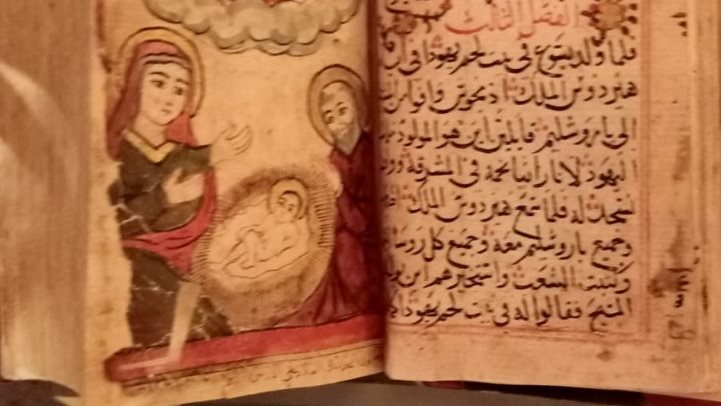 الفصل الثالث
فلما ولد يسوع في بيت لحم يهودا في
هيردوس الملك اذ مجوس وافوا من
الى ياروشليم قايلين اين هو المولود
اليهود لاننا راينا نجمه في المشرق
لنسجد له فلما سمع هيردوس الملك
وجميع ياروشليم معه وجميع كل روسا
وكتبة الشعب واستخبرهم اين
المسيح فقالوا له في بيت لحم يهودا